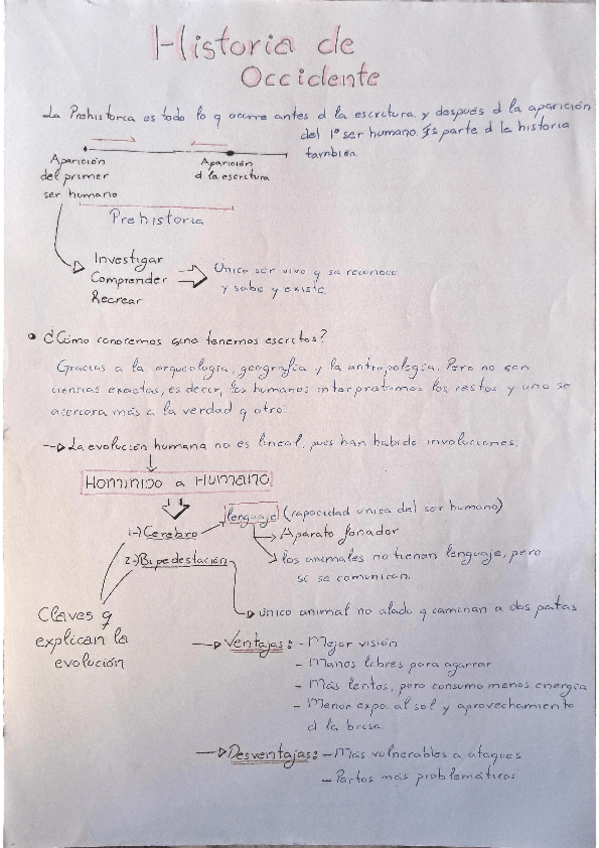 Historia de
Occidente
La Prehistoria es todo lo q ocurre antes d la escritura y después d la aparición
del 1º ser humano. Es parte d la historia
también.
Aparición
del primer
ser humano
Aparición
d la escritura
Prehistoria
Investigar
Comprender
Recrear
Único ser vivo q se reconoce
y sabe q existe.
¿Cómo conocemos sino tenemos escritos?
Gracias a la arqueología, geografía y la antropología. Pero no son
ciencias exactas, es decir, los humanos interpretamos los restos y uno se
acercara más a la verdad q otro.
La evolución humana no es lineal, pues han habido involuciones.
Hominido a Humano
1-) Cerebro
lenguaje (capacidad única del ser humano)
Aparato fonador
los animales no tienen lenguaje, pero
si se comunican.
2-) Bipedestación
único animal no alado q caminan a dos patas
Claves q
explican la
evolución
Ventajas: - Mejor visión
- Manos libres para agarrar
- Más lentos, pero consumo menos energía
- Menor expo al sol y aprovechamiento
d la brisa
Desventajas: - Más vulnerables a ataques
- Partos más problemáticos